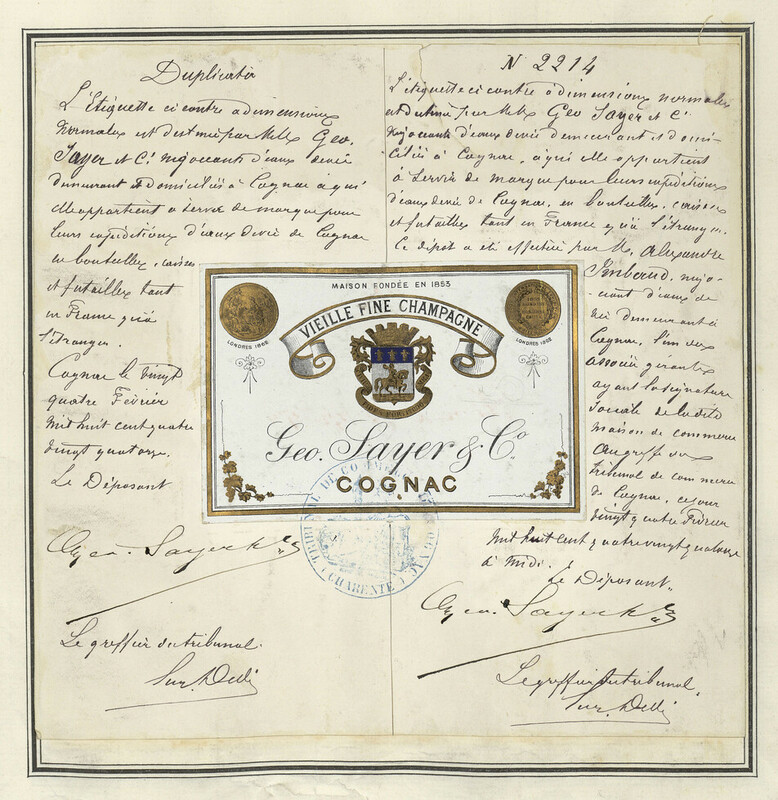 Duplicata
L'étiquette ci contre a dimensions
normales est destinée par MM Geo.
Sayer et Cie négociants d'eaux de vie
demeurant et domiciliés à Cognac à qui
elle appartient à servir de marque pour
leurs expéditions d'eaux de vie de Cognac
en bouteilles, caisses
et futailles tant
en France qu'à
l'étranger.
Cognac le vingt
quatre Février
mil huit cent quatre
vingt quatorze.
Le Déposant
Geo. Sayer & Co
Le greffier du tribunal.
N 2214
L'étiquette ci contre a dimensions normales
est destinée par MM Geo Sayer et Cie
négociants d'eaux de vie demeurant et domi-
ciliés à Cognac, à qui elle appartient
à servir de marque pour leurs expéditions
d'eaux de vie de Cognac, en bouteilles, caisses
et futailles tant en France qu'à l'étranger.
Ce dépôt a été effectué par M. Alexandre
Imberaud, négo-
ciant d'eaux de
vie demeurant à
Cognac, l'un des
associés gérants
ayant la signature
sociale de la dite
maison de commerce
au greffe du
tribunal de commerce
de Cognac, ce jour
vingt quatre Février
mil huit cent quatre vingt quatorze
à midi.
Le Déposant.
Geo. Sayer & Co
Le greffier du tribunal.
MAISON FONDÉE EN 1853
VIEILLE FINE CHAMPAGNE
LONDRES 1862
LONDRES 1862
Geo. Sayer & Co
COGNAC
TRIBUNAL DE COMMERCE COGNAC
(CHARENTE)